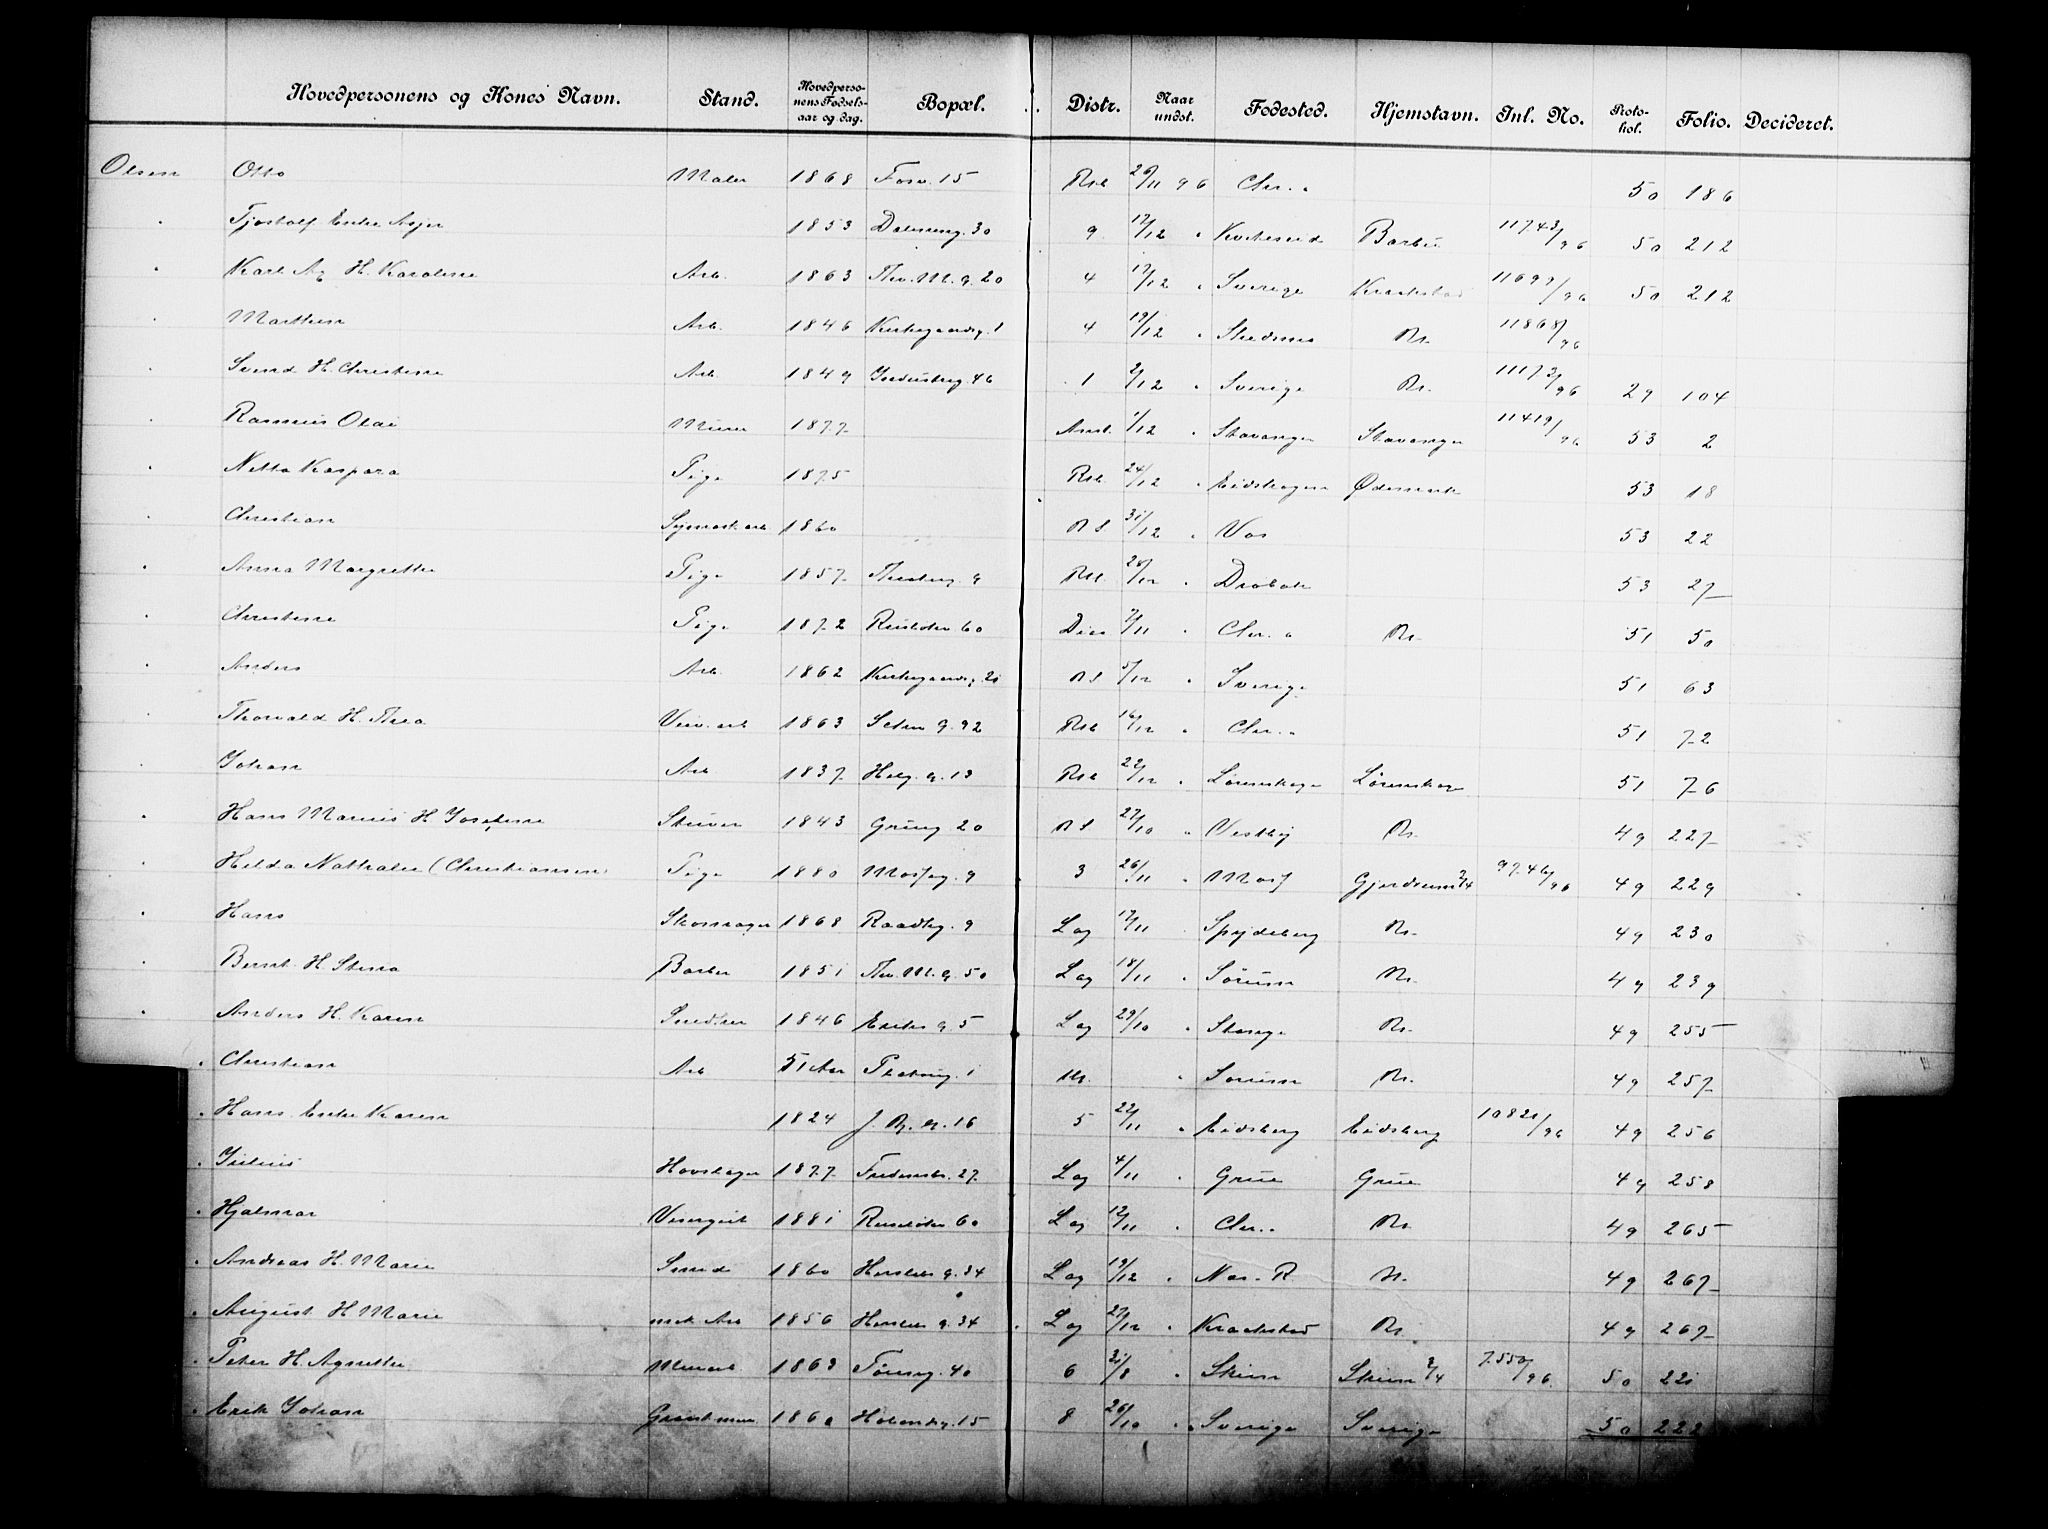 Hovedpersonens og Kones Navn. Stand. Hovedperso-nens Fødsels-aar og dag. Bopæl. Distr. Naar undst. Fødested. Hjemstavn. Inl. No. Proto-kol. Folio. Decideret.
Olsen Otto Maler 1868 Fosv. 15 Rst 26/11 96 Chr.a 50 186
" Tjostolf Enke Asjer 1853 30 9 17/12 " Barbu 11743/96 50 212
" Karl Ag H. Karoline Arb. 1863 Thv. M. g. 20 4 17/12 " Sverige Kraakstad 11699/96 50 212
" Marthin Arb. 1846 Kirkegaardsg. 1 4 19/12 " Skedsmo Kr. 11868/96
" Svend H. Christine Arb. 1849 Industrig. 46 1 2/12 " Sverige Kr. 11172/96 29 104
" Rasmus Olai Murer 1877 Anst. 1/12 " Stavanger Stavanger 11419/96 53 2
" Netta Kaspara Pige 1875 Rst. 24/12 " Eidskogen Ødemark 53 18
" Christian 1860 R S 31/12 " Vos 53 22
" Anna Margrethe Pige 1857 Thorberg. 9 Rst. 28/12 " Drøbak 53 27
" Christine Pige 1872 Ruseløkv 60 Diac 7/11 " Chr.a Kr. 51 50
" Anders Arb. 1862 Kirkegaardsg. 21 R S 5/12 " Sverige 51 63
" Thorvald H. Thea Veiv. arb 1863 Seilen g. 92 Rst 16/12 " Chr.a 51 72
" Johan Arb 1837 Helg. g. 13 Rst 22/12 " Lørenskoge Lørenskoge 51 76
" Hans Marius H Josefine Stuver 1843 Grüng 20 R S 27/10 " Vestby Kr. 49 227
" Hilda Nathalie (Christiansen) Pige 1880 Mosseg. 9 3 26/11 " Moss Gjerdrum 2/4 9746/96 49 229
" Hans Skomager 1868 Raadhg. 9 Lag 17/11 " Spydeberg Kr. 49 230
" Bernt H. Stina Barber 1851 Thv. M. g. 50 Lag 18/11 " Sørum Kr. 49 239
" Anders H. Karen Snedker 1846 Eriks g. 5 Lag 29/10 " Stange Kr. 49 255
" Christian Arb 51 Aar 1 Kr. " Sørum Kr. 49 257
" Hans Enke Karen 1824 J. R. g. 16 5 22/11 " Eidsberg Eidsberg 10821/96 49 256
" Julius Hovslager 1877 Fredensb. 27 Lag 4/11 " Grue Grue 49 258
" Hjalmar Visergut 1881 Ruseløkv 60 Lag 12/11 " Chr.a Kr. 49 265
" Andreas H. Marie Smed 1860 Herslebs g. 34 Lag 19/12 " Nes. R Kr. 49 267
" August H Marie mek Arb 1856 Herslebs g. 34 Lag 27/12 " Kraakstad Kr. 49 267
" Peter H. Agnethe Murarb 1863 Tøieng. 40 6 31/8 " Skien Skien 2/4 7550/96 50 221
" Erik Johan 1860 15 8 26/10 " Sverige Sverige 50 222